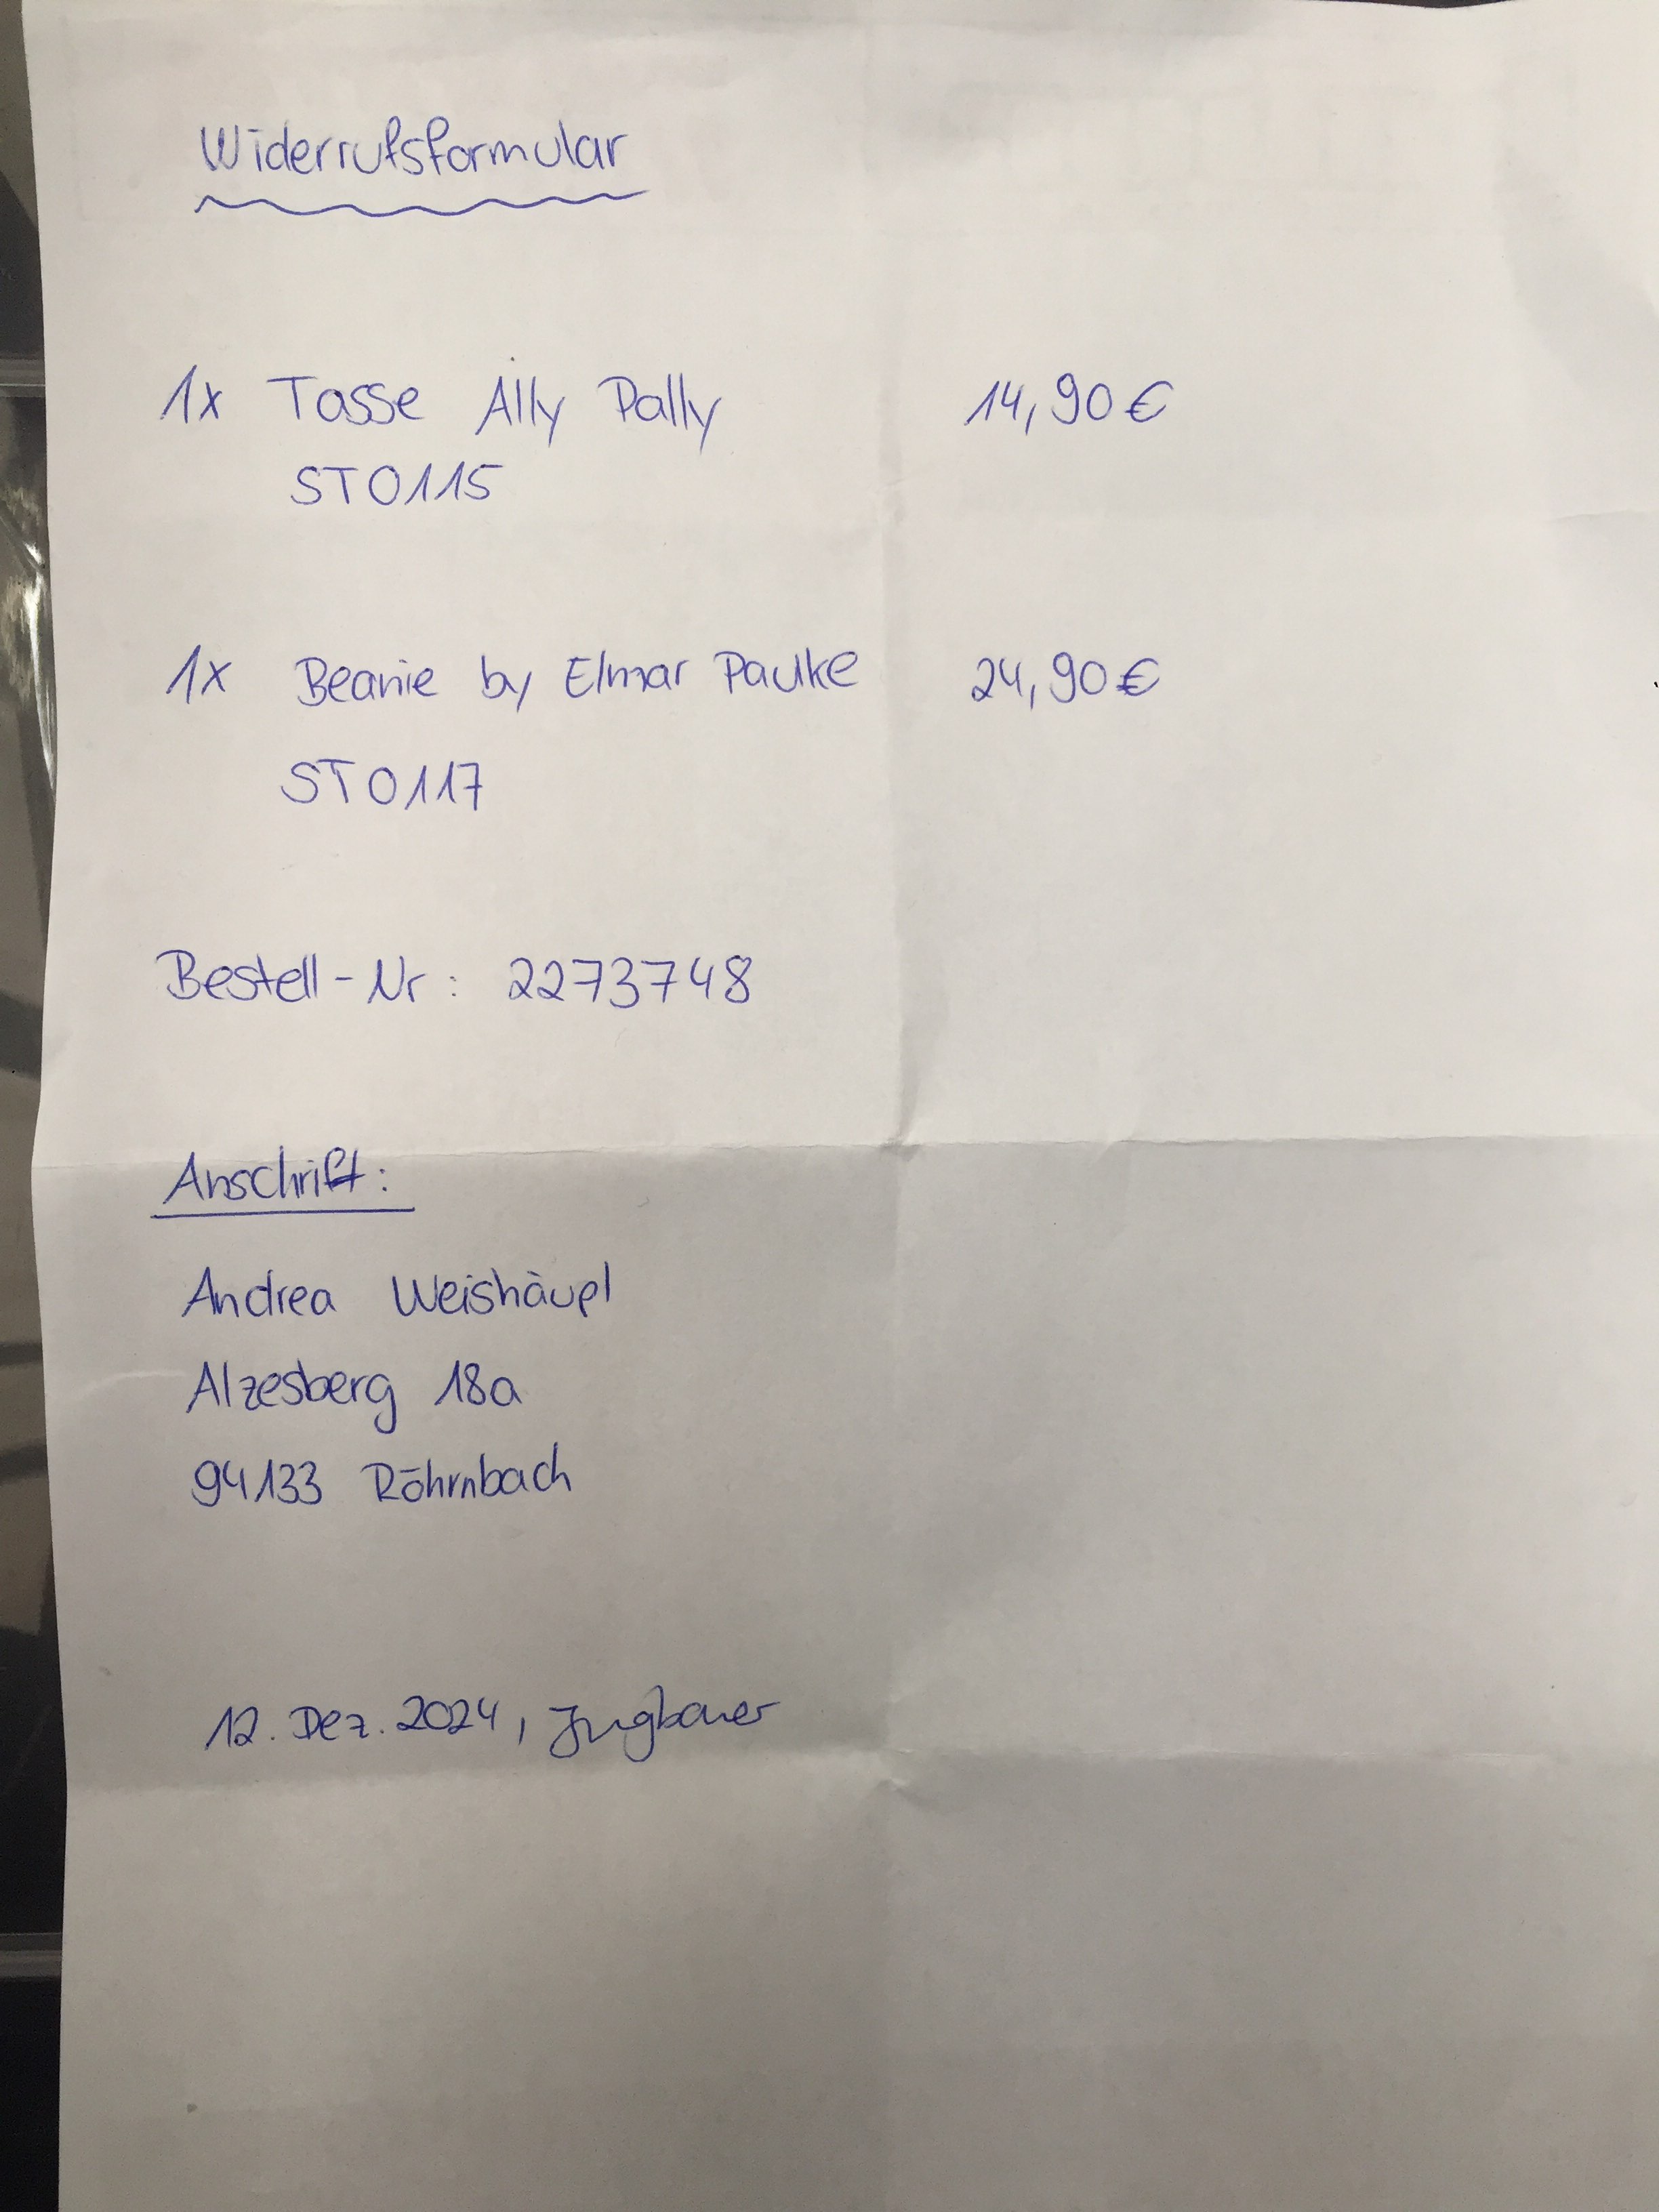 Widerrufsformular
1x Tasse Ally Pally 14,90€
STO115
1x Beanie by Elmar Paulke 24,90€
STO117
Bestell-Nr: 2273748
Anschrift:
Andrea Weishäupl
Alzesberg 18a
94133 Röhrnbach
12. Dez. 2024, Jungbauer